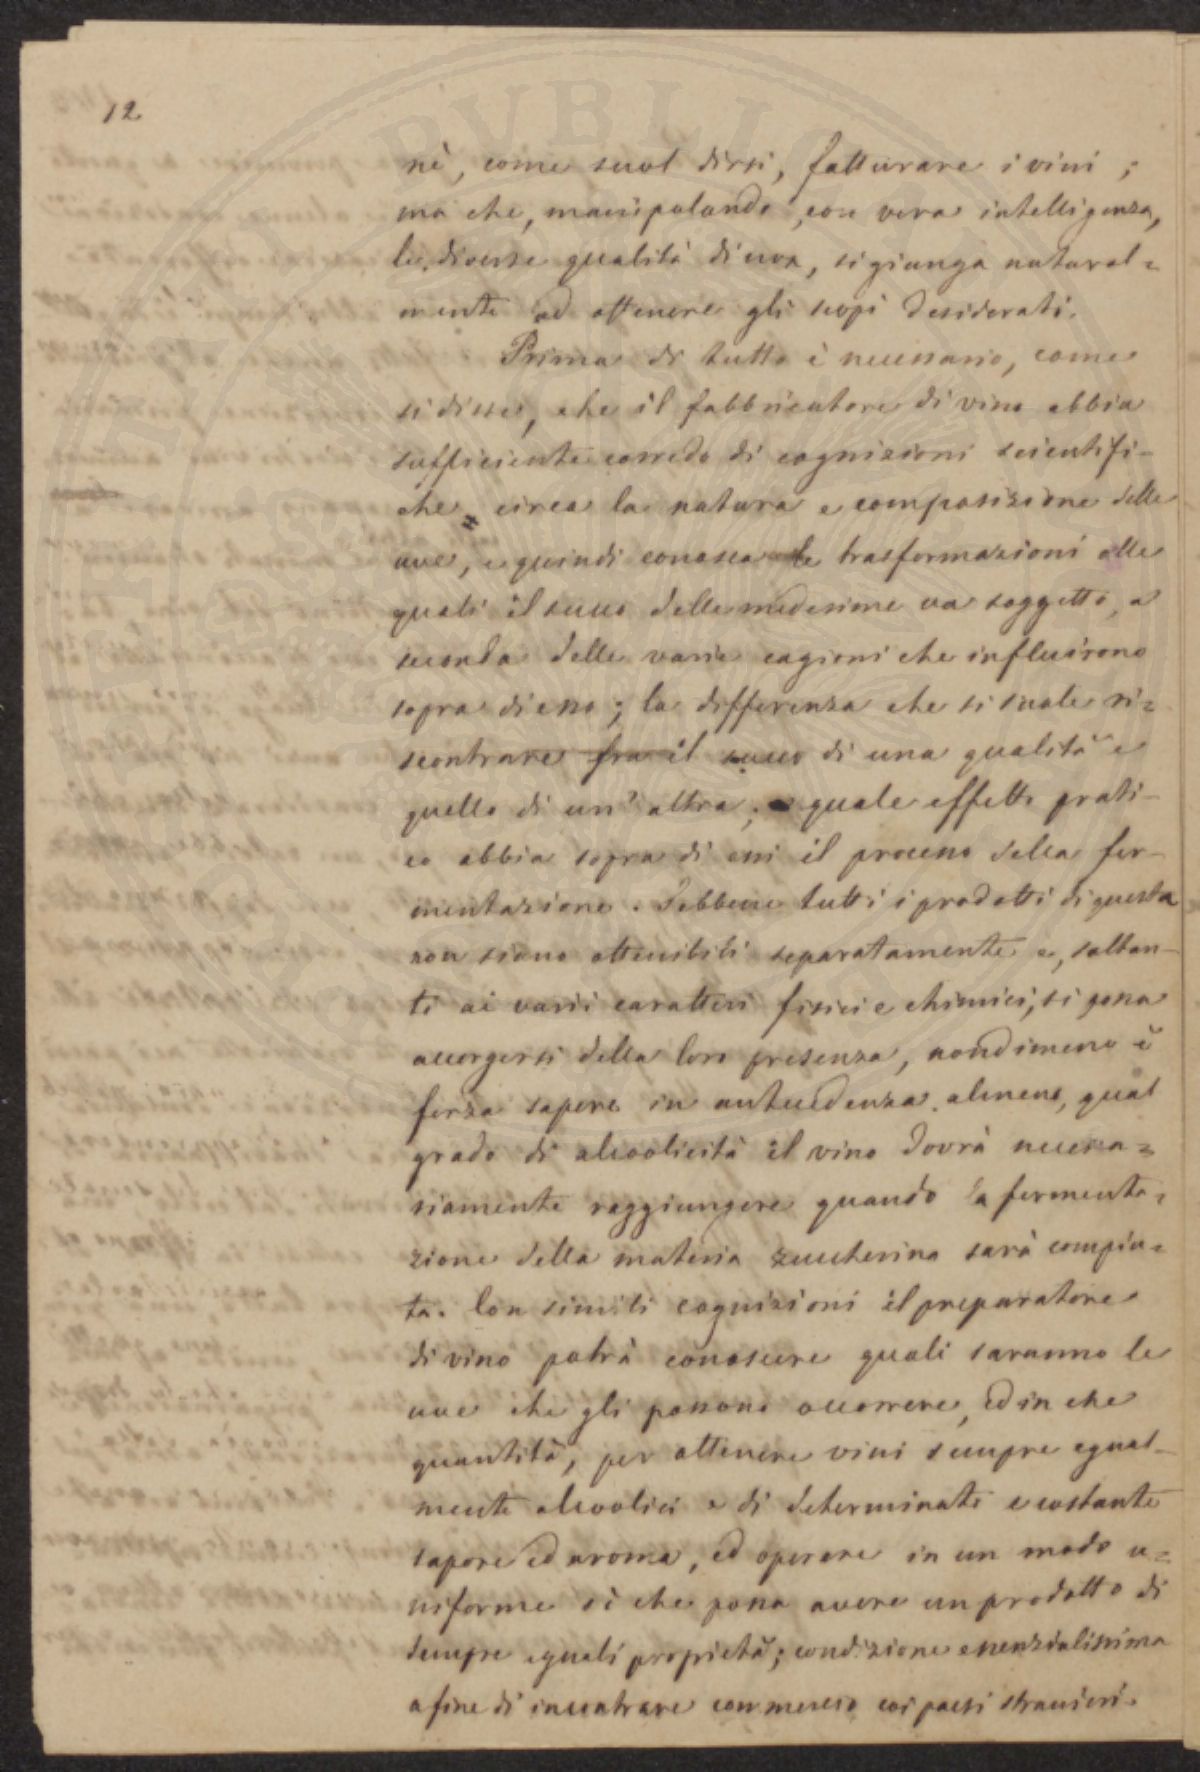 12
nè, come suol dirsi, fatturare i vini;
ma che, manipolando, con vera intelligenza,
le diverse qualità di uva, si giunga natural=
mente ad ottenere gli scopi desiderati.
Prima di tutto è necessario, come
si disse, che il fabbricatore di vino abbia
sufficiente corredo di cognizioni scientifi-
che circa la natura e composizione delle
uve, e quindi conosca le trasformazioni alle
quali il succo delle medesime va soggetto, a
seconda delle varie cagioni che influirono
sopra di esso; la differenza che si suole ri=
scontrare fra il succo di una qualità e
quello di un' altra; quale effetto prati-
co abbia sopra di essi il processo della fer-
mentazione. Sebbene tutti i prodotti di questa
non siano ottenibili separatamente e, soltan-
to ai varii caratteri fisici e chimici, si possa
accorgersi della loro presenza, nondimeno è
forza sapere in antecedenza almeno, qual
grado di alcoolicità il vino dovrà necessa=
riamente raggiungere quando la fermenta=
zione della materia zuccherina sarà compiu=
ta. Con simili cognizioni il preparatore
di vino potrà conoscere quali saranno le
uve che gli possono occorrere, ed in che
quantità, per ottenere vini sempre egual-
mente alcoolici e di determinato e costante
sapore ed aroma, ed operare in un modo u=
niforme sì che possa avere un prodotto di
sempre eguali proprietà; condizione essenzialissima
a fine di incontrare commercio coi paesi stranieri.
PVBLIC